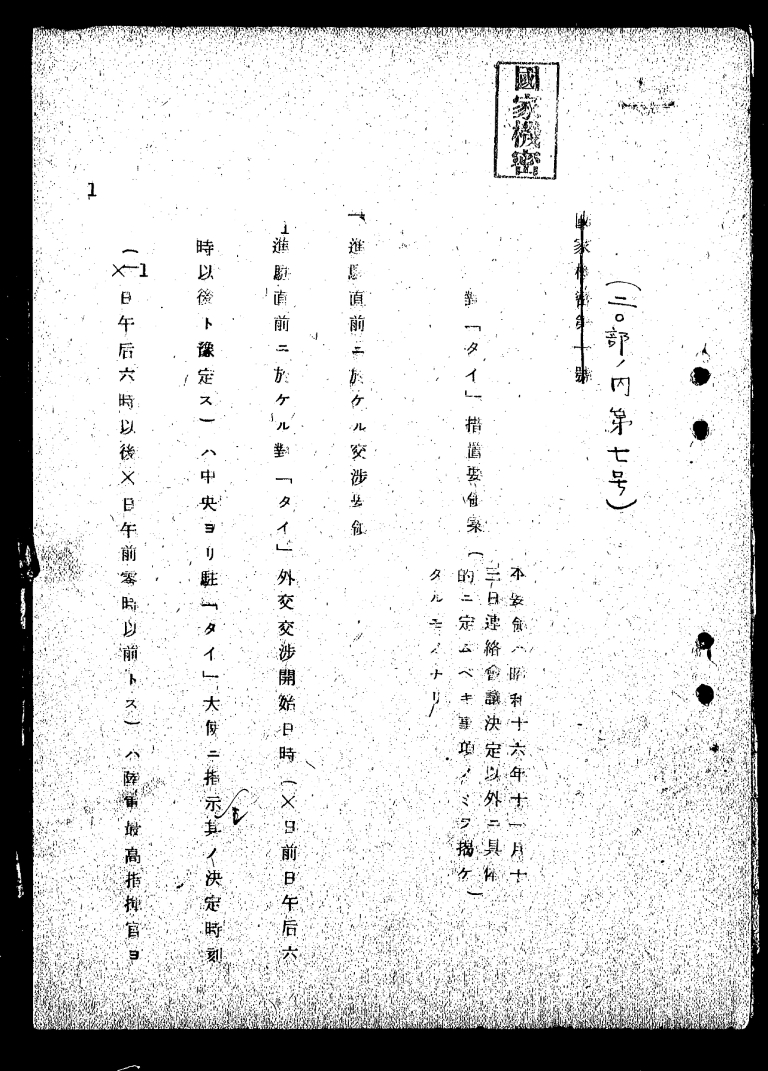 國家機密
(二〇部ノ内第七号)
國家機密第一號
對「タイ」措置要領案
(本要領ハ昭和十六年十一月十
三日連絡會議決定以外ニ具体
的ニ定ムベキ事項ノミヲ揭ケ
タルモノナリ)
一、進駐直前ニ於ケル交涉要領
1進駐直前ニ於ケル對「タイ」外交交涉開始日時(×日前日午后六
時以後ト豫定ス)ハ中央ヨリ駐「タイ」大使ニ指示其ノ決定時刻
(×日午后六時以後×日午前零時以前トス)ハ陸軍最高指揮官ヨ
1